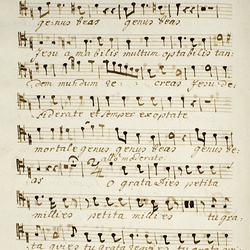 genus beas genus beas
Jesu amabilis multum optabilis tan-
dem mundum be- creas Jesu de-
siderate et semper exoptate
mortale genus genus beas genus be-
allo moderato
as. O grata dies petita
millies petita millies tu gra-
ta dies tu grata